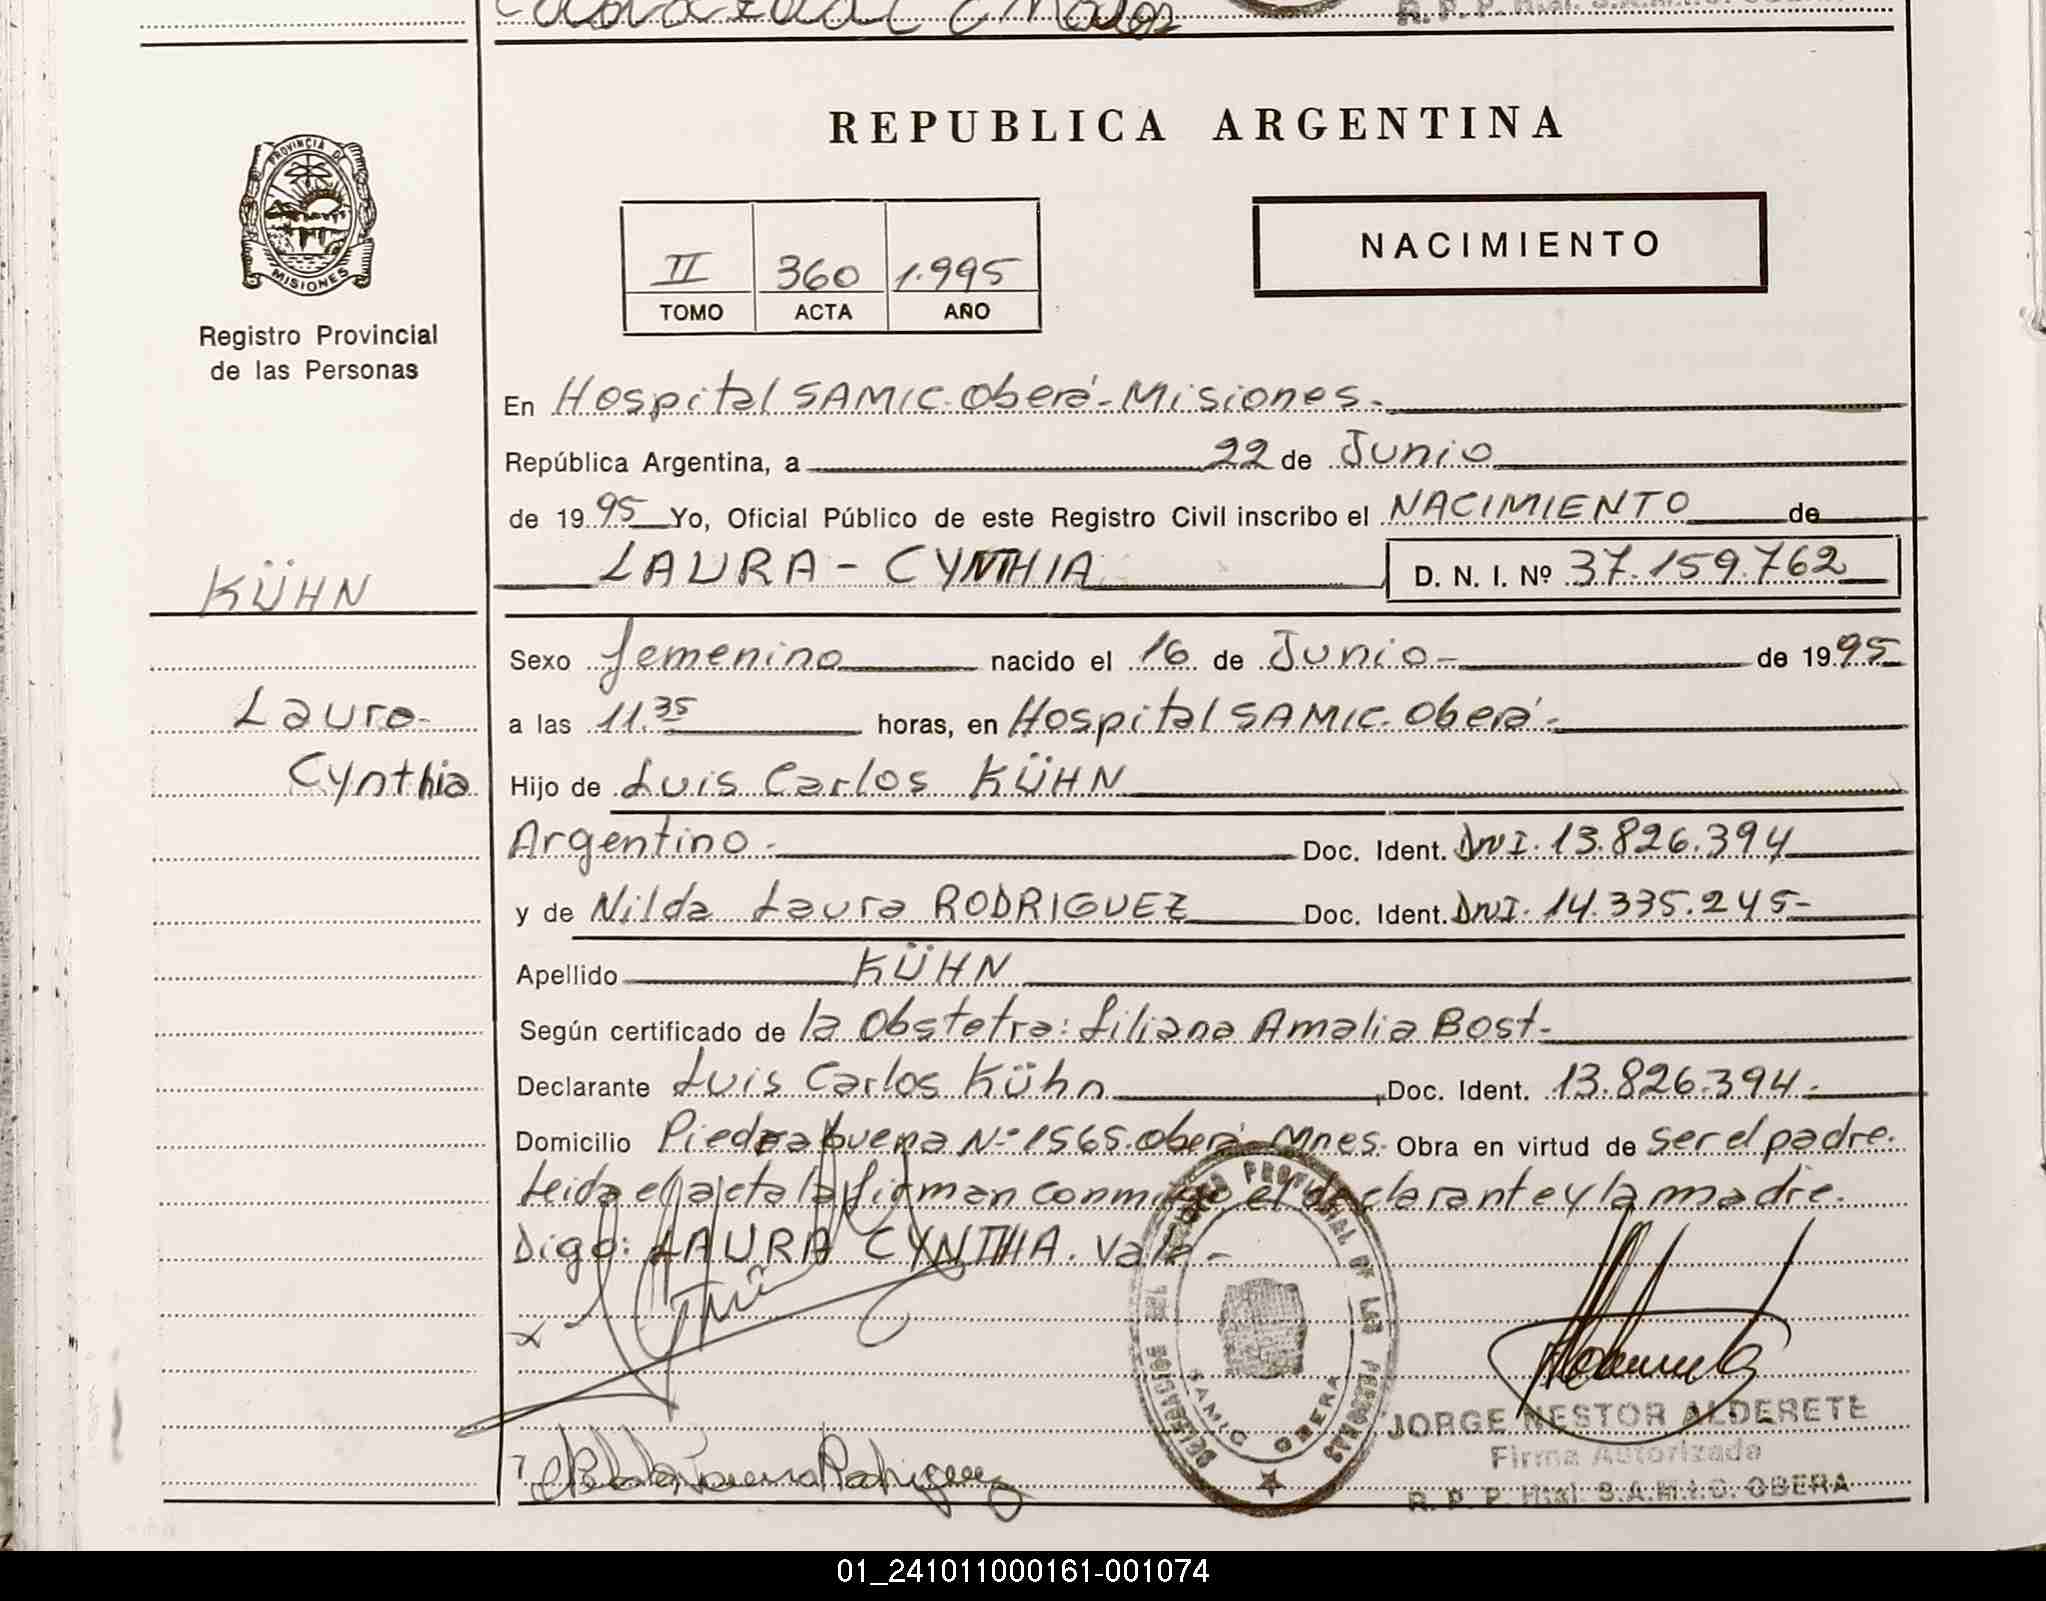 REPUBLICA ARGENTINA
PROVINCIA DE
MISIONES
Registro Provincial
de las Personas
II 360 1.995
TOMO ACTA AÑO
NACIMIENTO
En Hospital SAMIC. Oberá-Misiones.
República Argentina, a 22 de Junio
de 1995 Yo, Oficial Público de este Registro Civil inscribo el NACIMIENTO de
LAURA - CYNTHIA D. N. I. Nº 37.159.762
KÜHN
Laura
Cynthia
Sexo femenino nacido el 16 de Junio- de 1995
a las 11.35 horas, en Hospital SAMIC. Oberá-
Hijo de Luis Carlos KÜHN
Argentino- Doc. Ident. DNI. 13.826.394
y de Nilda Laura RODRIGUEZ Doc. Ident. DNI. 14.335.245-
Apellido KÜHN
Según certificado de la Obstetra: Liliana Amalia Bost-
Declarante Luis Carlos Kühn, Doc. Ident. 13.826.394-
Domicilio Piedrabuena Nº 1565. Oberá-Mnes. Obra en virtud de ser el padre.
Leida el acta la firman conmigo el declarante y la madre.
Digo: LAURA CYNTHIA. Vale-
SAMIC OBERA
JORGE NESTOR ALDERETE
Firma Autorizada
R. P. P. Htal. S.A.M.I.C. OBERA
Nilda Laura Rodriguez
01_241011000161-001074